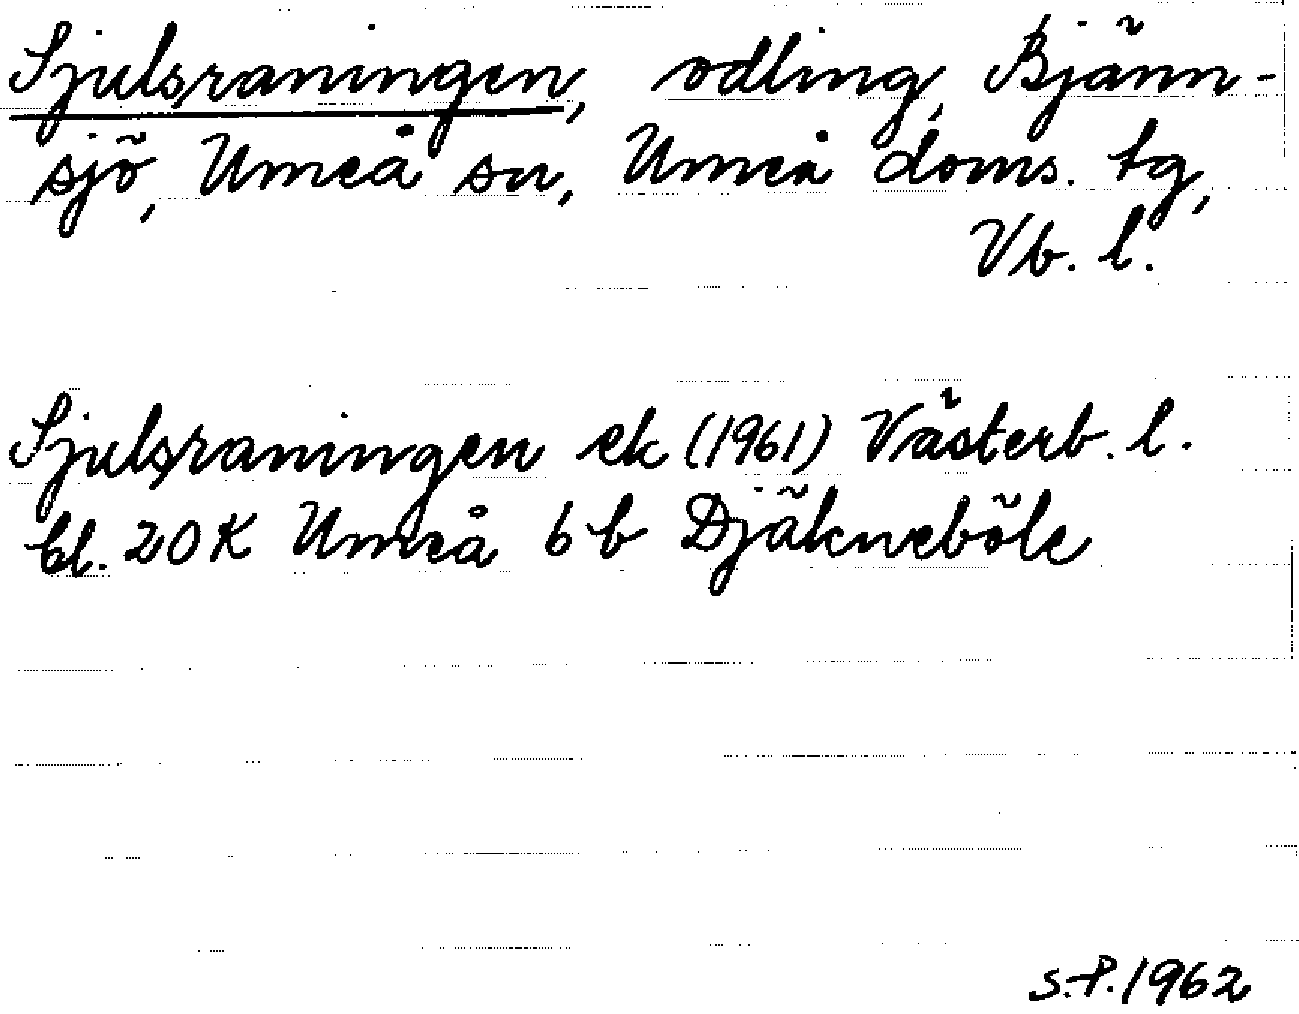 Sjulsraningen, odling, Bjänn-
sjö, Umeå sn, Umeå doms. tg,
Vb. l.
Sjulsraningen ek (1961) Västerb. l.
bl. 20 K Umeå 6 b Djäkneböle
S.P. 1962